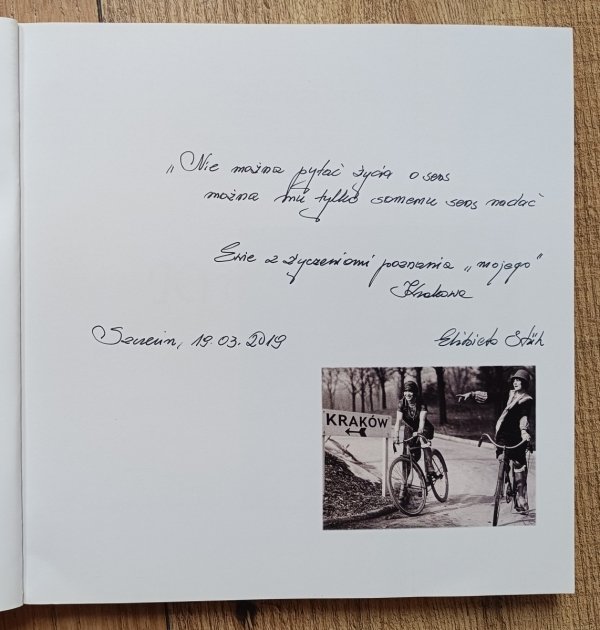 „Nie można pytać życia o sens
można mu tylko samemu sens nadać
Ewie z życzeniami poznania „mojego"
Krakowa
Szczecin, 19.03.2019
Elżbieta
KRAKÓW